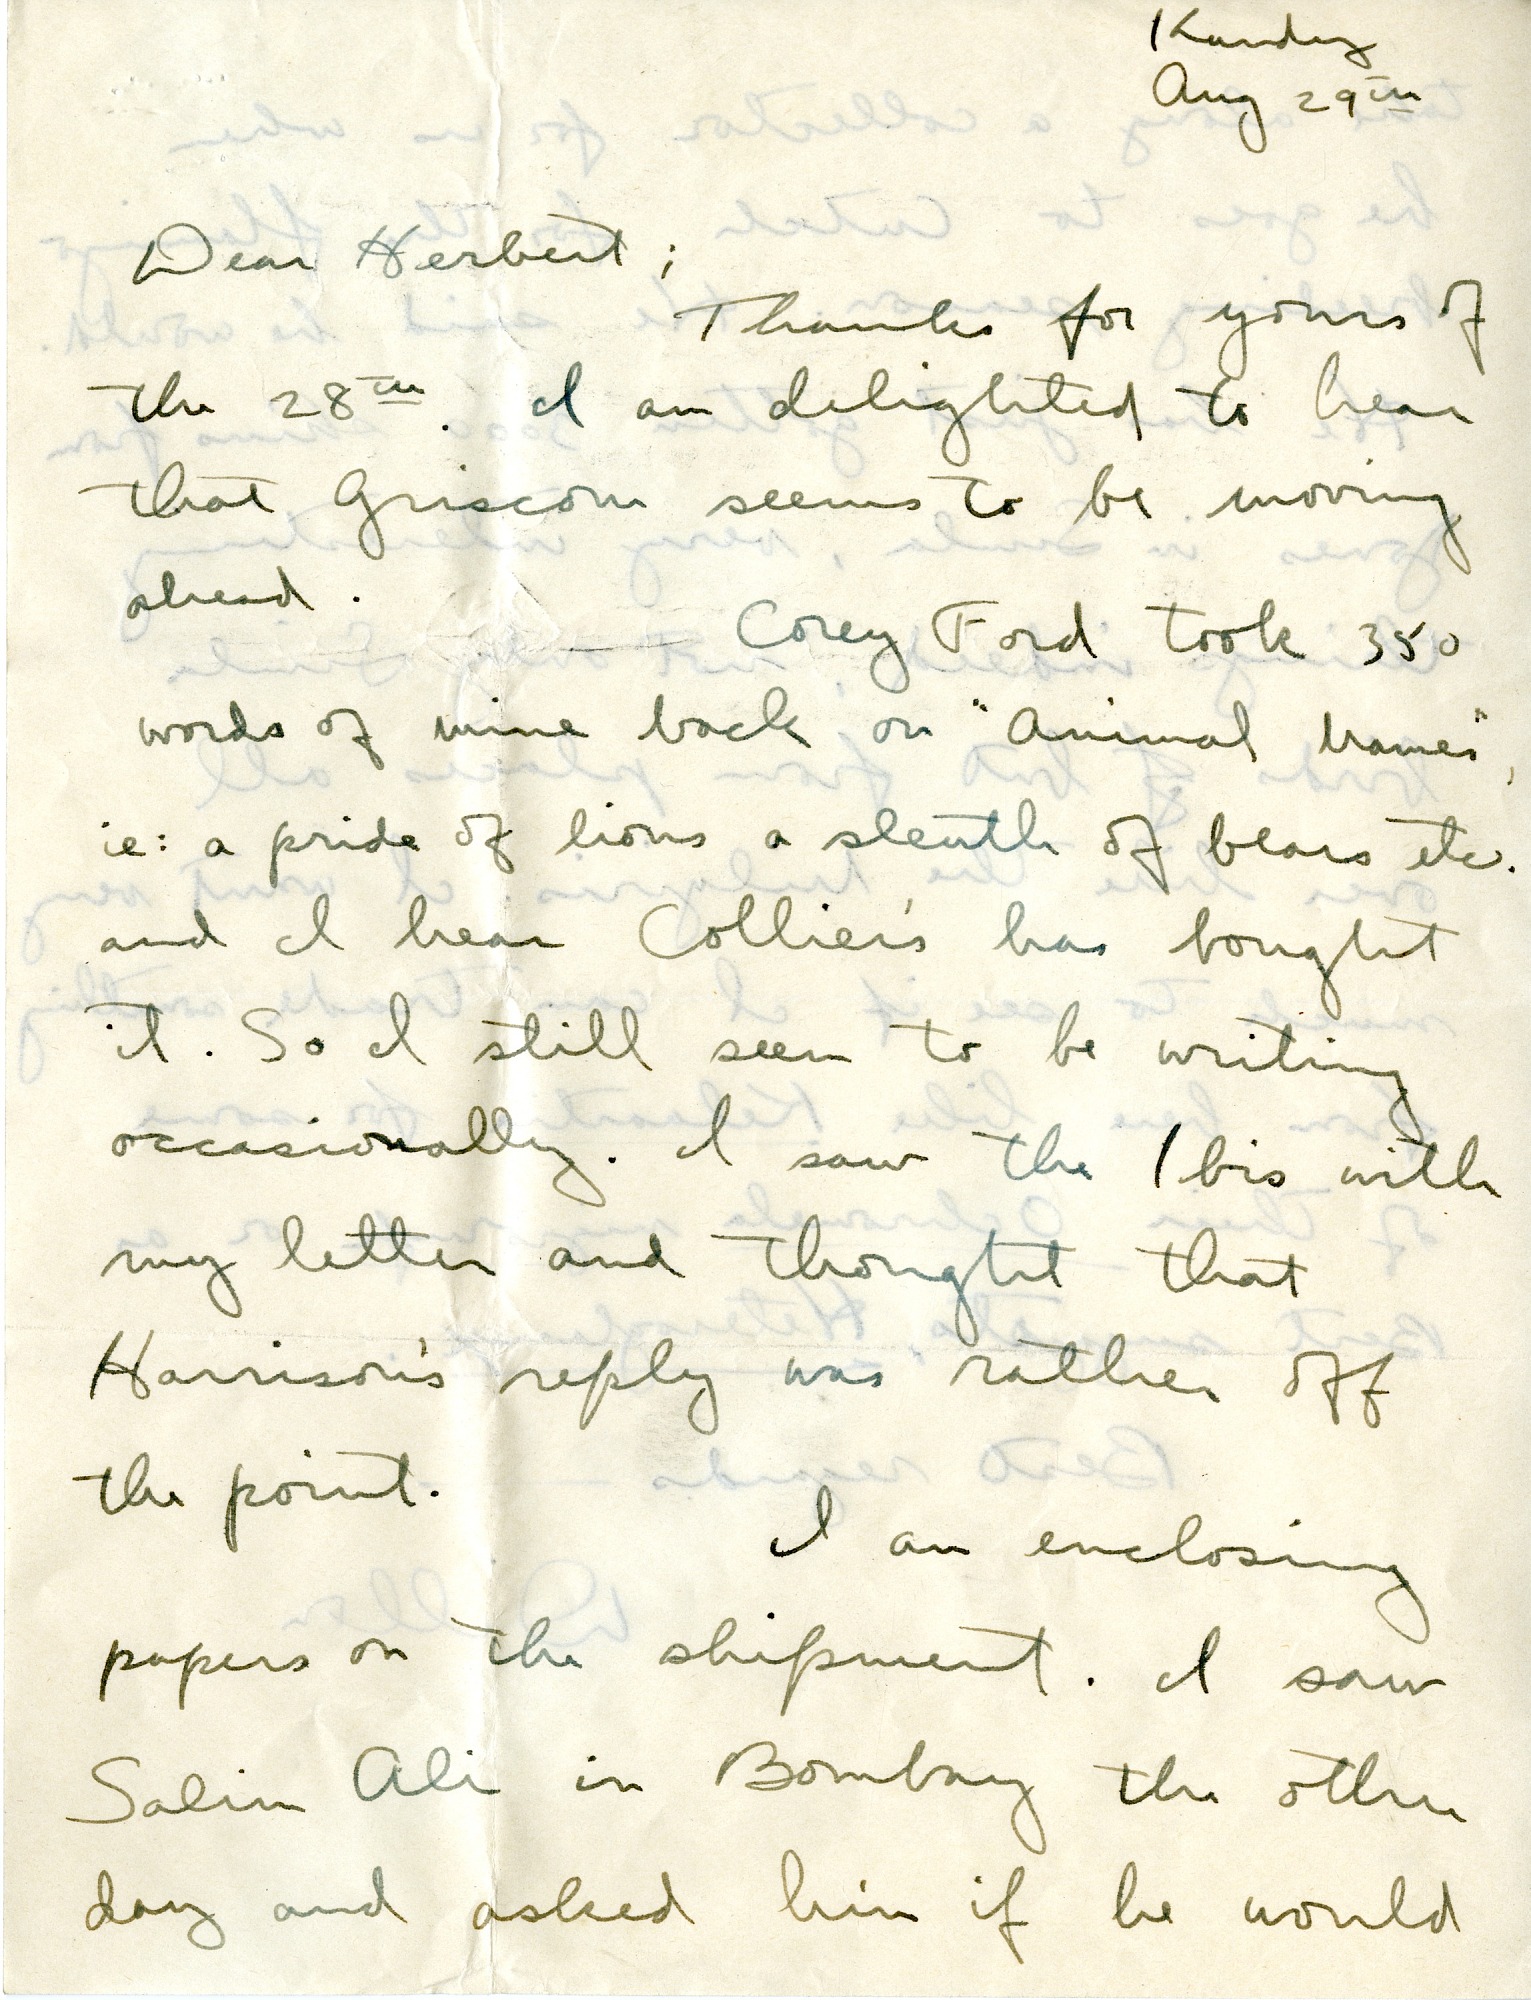 Kandy
Aug 29th
Dear Herbert;
Thanks for yours of
the 28th. I am delighted to hear
that Griscom seems to be moving
ahead.
Corey Ford took 350
words of mine back on "Animal Names",
ie: a pride of lions a sleuth of bears etc.
and I hear Collier's has bought
it. So I still seem to be writing
occasionally. I saw the Ibis with
my letter and thought that
Harrison's reply was rather off
the point.
I am enclosing
papers on the shipment. I saw
Salim Ali in Bombay the other
day and asked him if he would